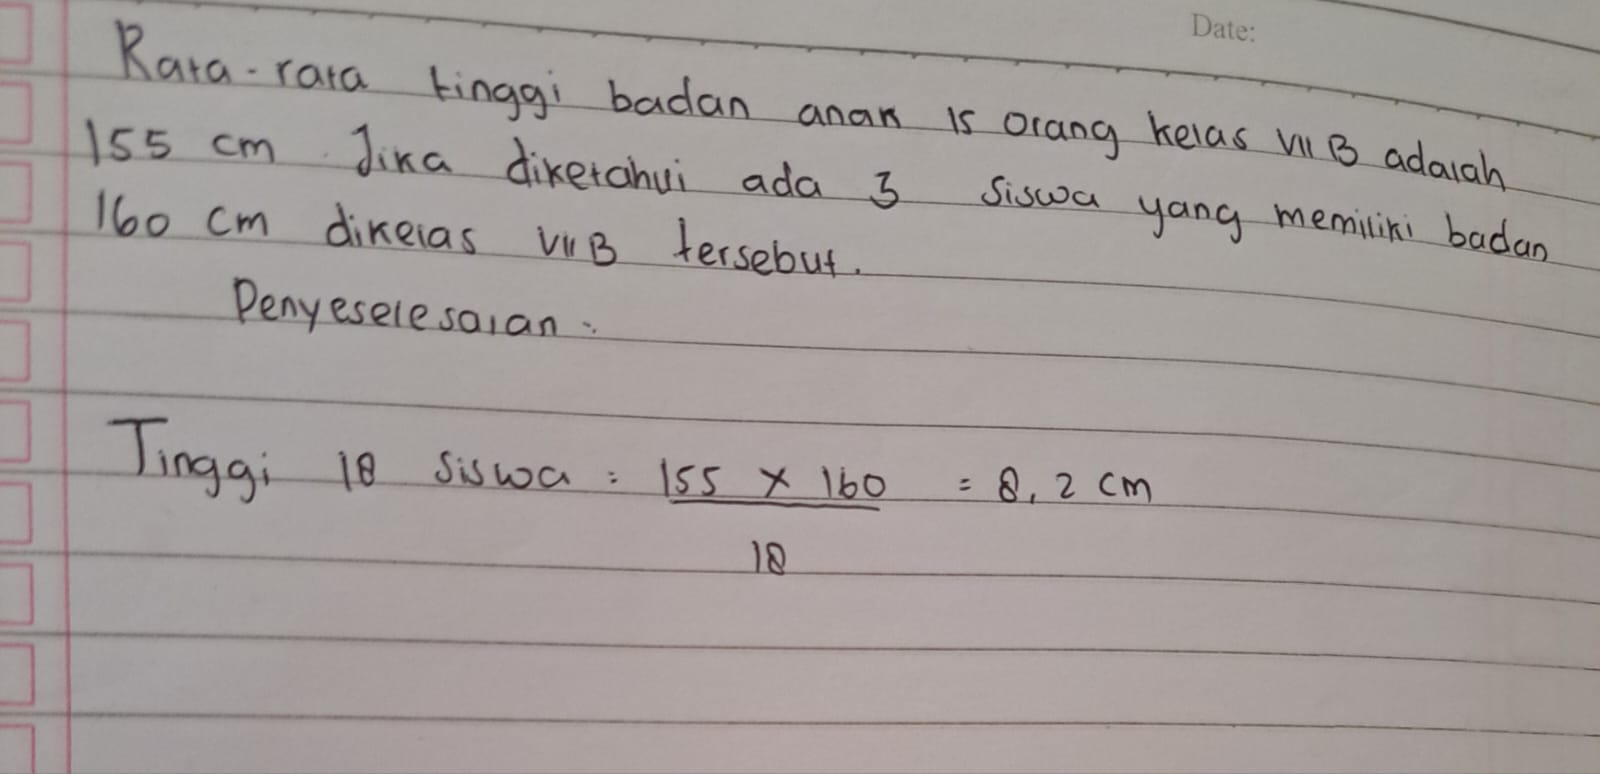 Date:
Rata-rata tinggi badan anak 15 orang kelas VII B adalah
155 cm. Jika diketahui ada 3 siswa yang memiliki badan
160 cm dikelas VII B tersebut.
Penyeselesaian :
Tinggi 18 siswa : 155 x 160 = 8,2 cm
18